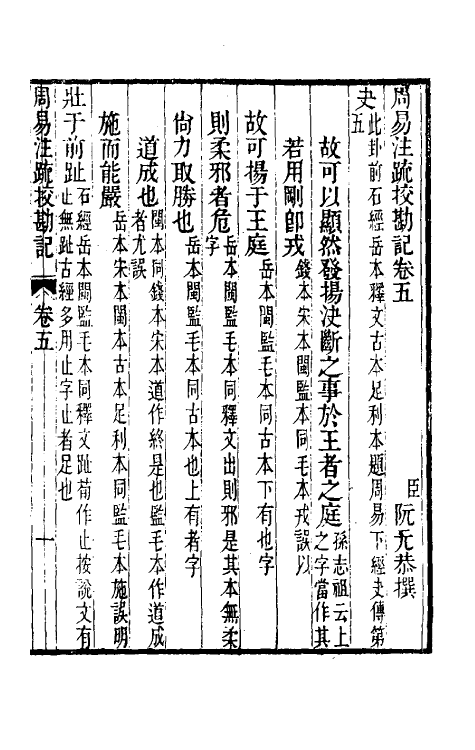 周易注疏挍勘記卷五
臣阮元恭撰
夬此卦前石經岳本釋文古本足利本題周易下經夬傳第五
故可以顯然發揚決斷之事於王者之庭孫志祖云上之字當作其
若用剛卽戎錢本宋本閩監本同毛本戎誤以
故可揚于王庭岳本閩監毛本同古本下有也字
則柔邪者危岳本閩監毛本同釋文出則邪是其本無柔字
尙力取勝也岳本閩監毛本同古本也上有者字
道成也閩本同錢本宋本道作終是也監毛本作道成者尤誤
施而能嚴岳本宋本閩本古本足利本同監毛本施誤明
壯于前趾石經岳本閩監毛本同釋文趾荀作止按說文有止無趾古經多用止字止者足也
周易注疏挍勘記
卷五
一